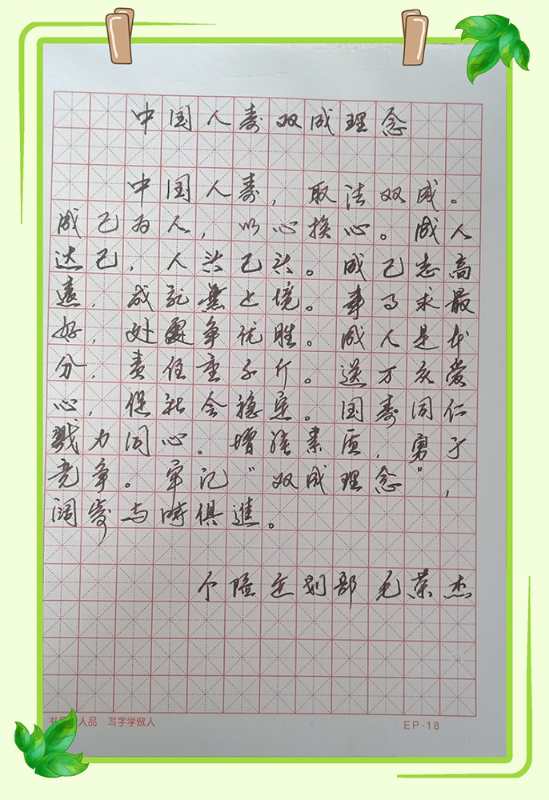 中国人寿双成理念
中国人寿，取法双成。
成己为人，以心换心。成人
达己，人兴己兴。成己志高
远，成就无上境。事事求最
好，处处争优胜。成人是本
分，责任重千斤。送万家爱
心，促社会稳定。国寿同仁
戮力同心。增强素质，勇于
竞争。牢记“双成理念”，
阔步与時俱進。
个险企划部 毛荣杰
人品 写字学做人
EP-18